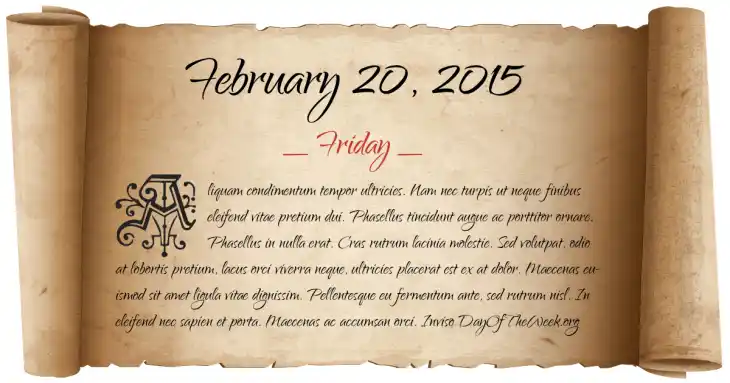 February 20, 2015
Friday
Aliquam condimentum tempor ultricies. Nam nec turpis ut neque finibus
eleifend vitae pretium dui. Phasellus tincidunt augue ac porttitor ornare.
Phasellus in nulla erat. Cras rutrum lacinia molestie. Sed volutpat, odio
at lobortis pretium, lacus orci viverra neque, ultricies placerat est ex at dolor. Maecenas eu-
ismod sit amet ligula vitae dignissim. Pellentesque eu fermentum ante, sed rutrum nisl. In
eleifend nec sapien et porta. Maecenas ac accumsan orci. Inviso DayOfTheWeek.org